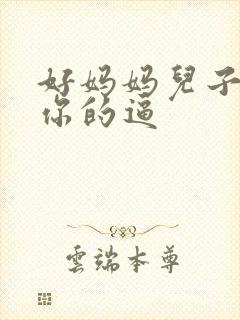 好妈妈兒子
你的逼
雲端本尊